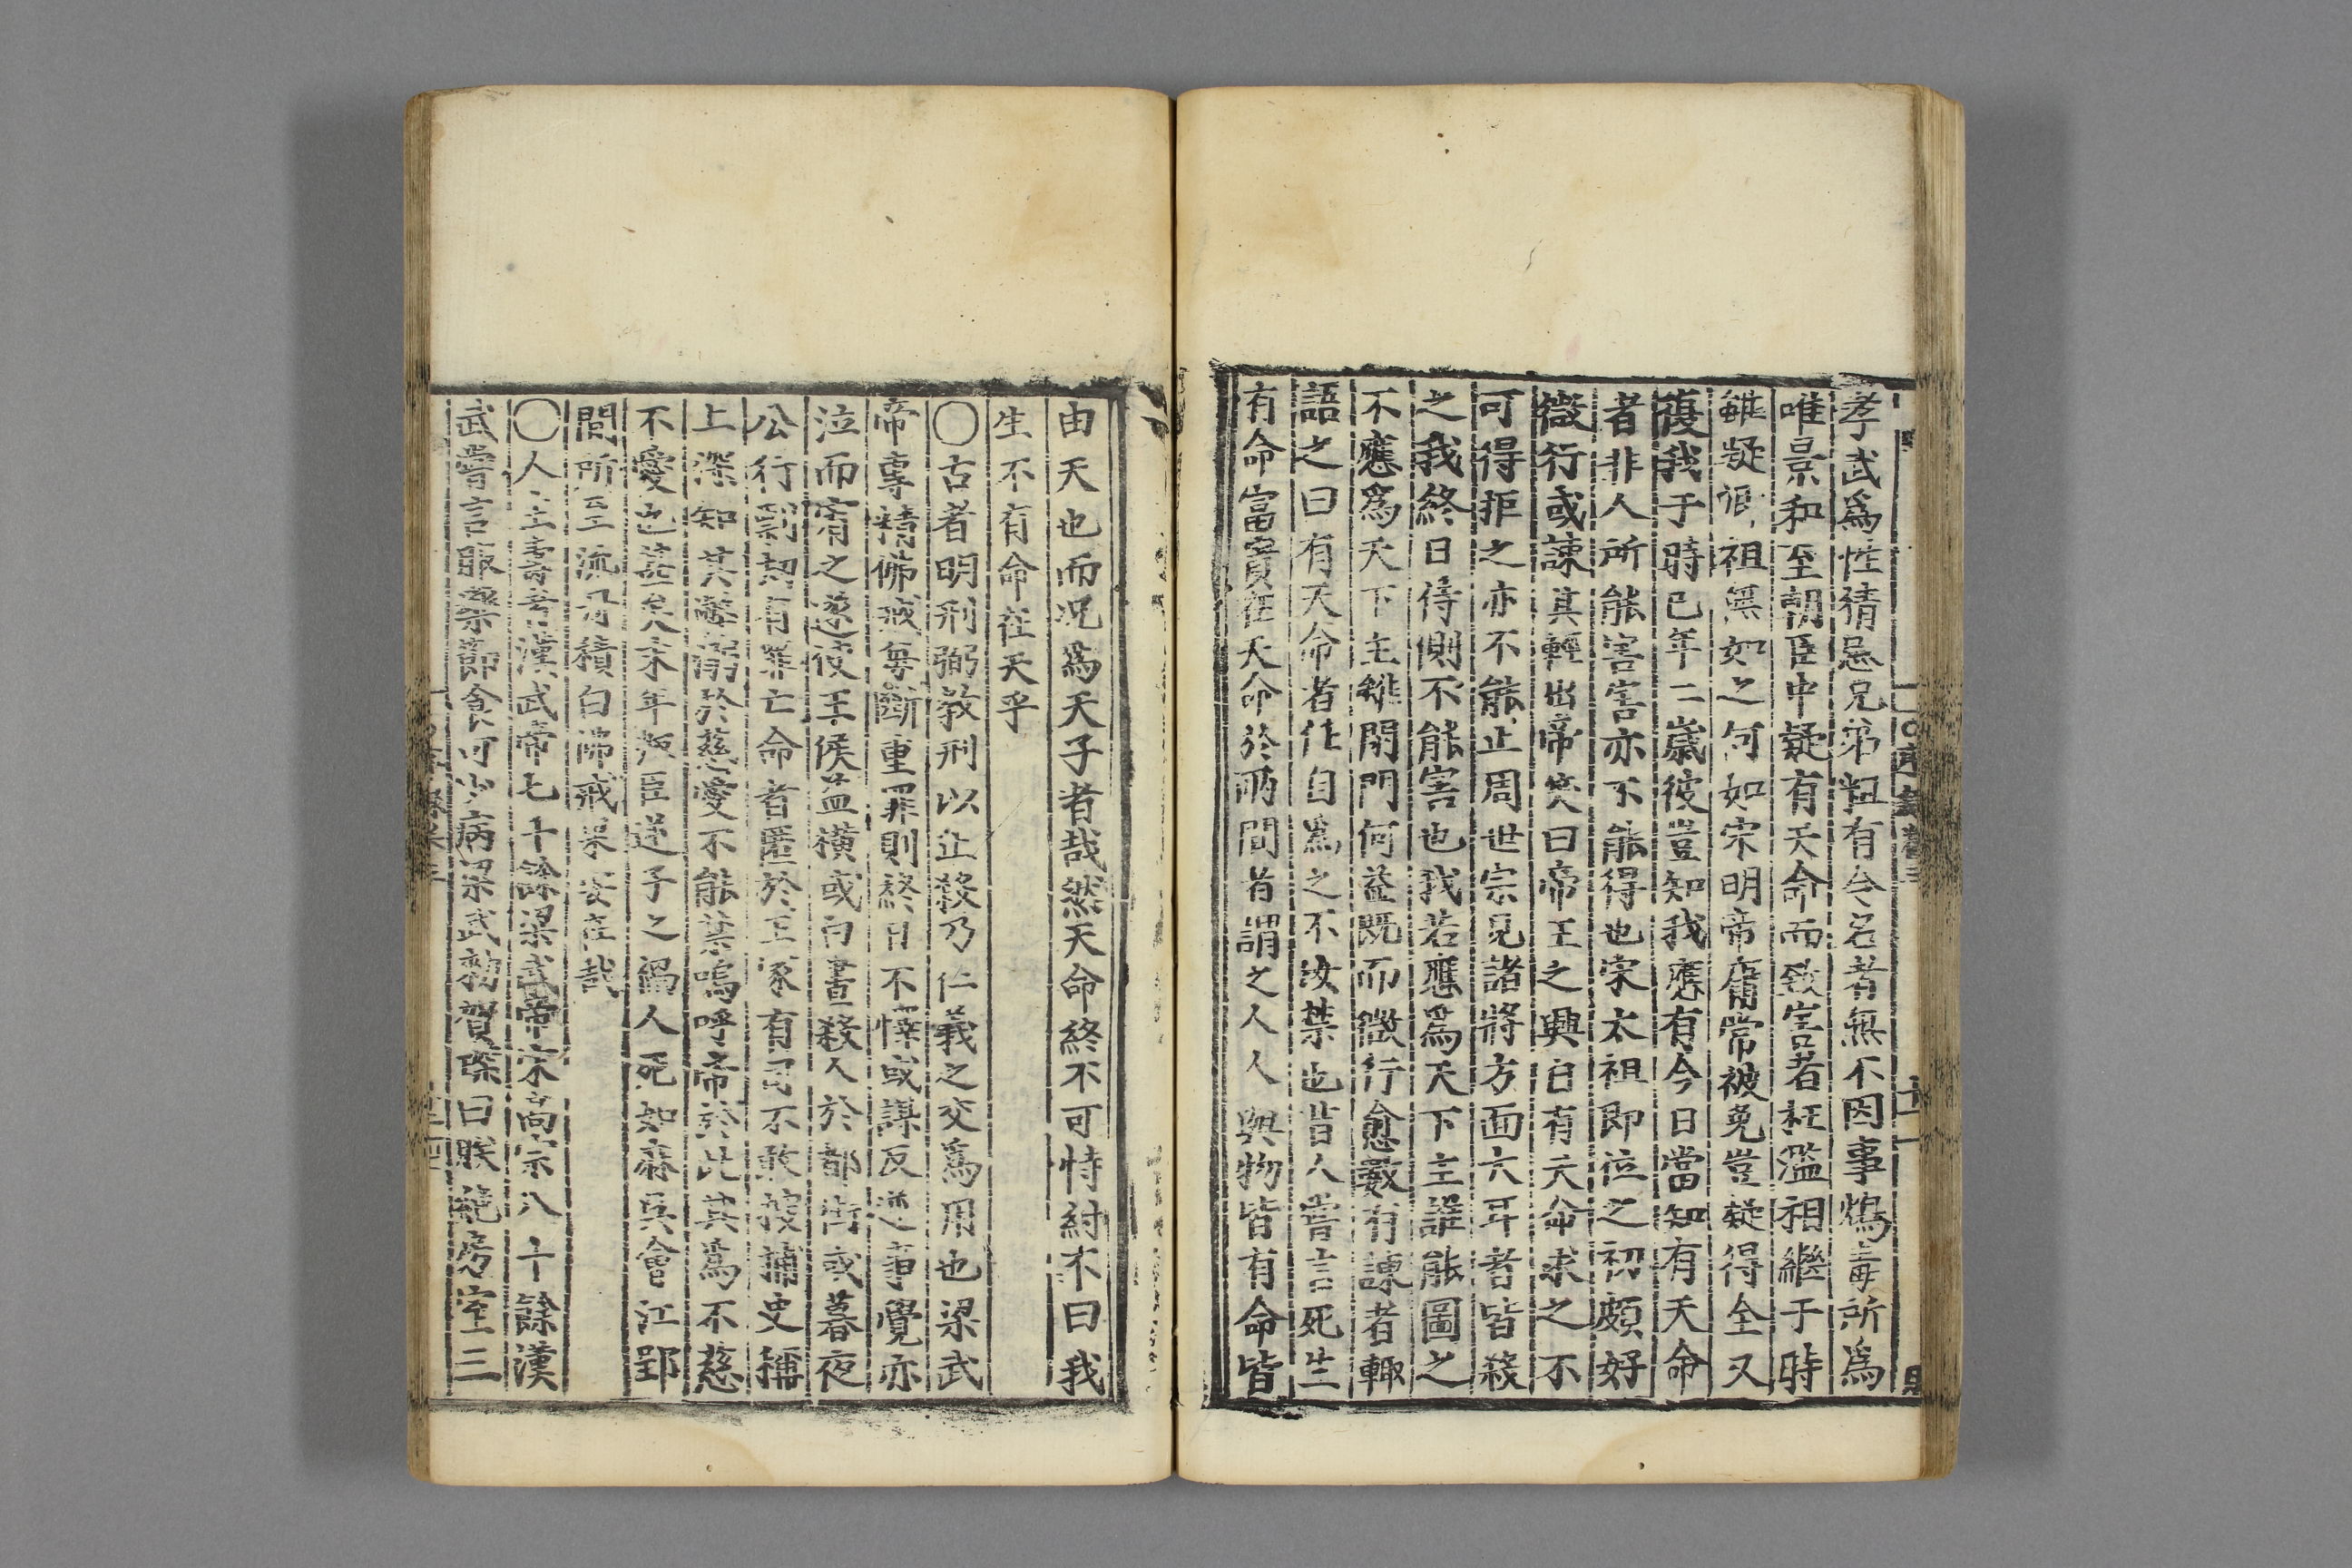 孝武爲性猜忌兄弟粗有令名者無不因事鴆毒所爲
唯景和至朝臣中疑有天命而致害者枉濫相継于時
雖疑祖無如之何如宋明帝庸常被免豈疑得全又
復我于時已年二歲彼豈知我應有今日當知有天命
者非人所能害害亦不能得也宋太祖即位之初頗好
微行或諫其輕出帝笑曰帝王之興自有天命求之不
可得拒之亦不能止周世宗見諸將方面大耳者皆殺
之我終日侍側不能害也我若應爲天下主誰能圖之
不應爲天下主雖閉門何益既而微行愈數有諫者輙
語之曰有天命者任自爲之不汝禁也昔人嘗言死生
有命富貴在天命於兩間者謂之人人與物皆有命皆
由天也而况爲天子者哉然天命終不可恃紂不曰我
生不有命在天乎
〇古者明刑弼敎刑以止殺乃仁義之交爲用也梁武
帝專精佛戒每斷重罪則終日不懌或謀反逆事覺亦
泣而宥之遂使王侯益橫或白晝殺人於都街或暮夜
公行剽刼有罪亡命者匿於王家有司不敢搜捕史稱
上深知其弊溺於慈愛不能禁嗚呼帝於此其爲不慈
不愛也甚矣末年叛臣逆子之禍人死如麻吳會江郢
間所至流丹積白佛戒果安在哉
〇人主壽者漢武帝七十餘梁武帝宋高宗八十餘漢
武嘗言服藥節食可少病梁武勑賀琛曰朕絕房室三